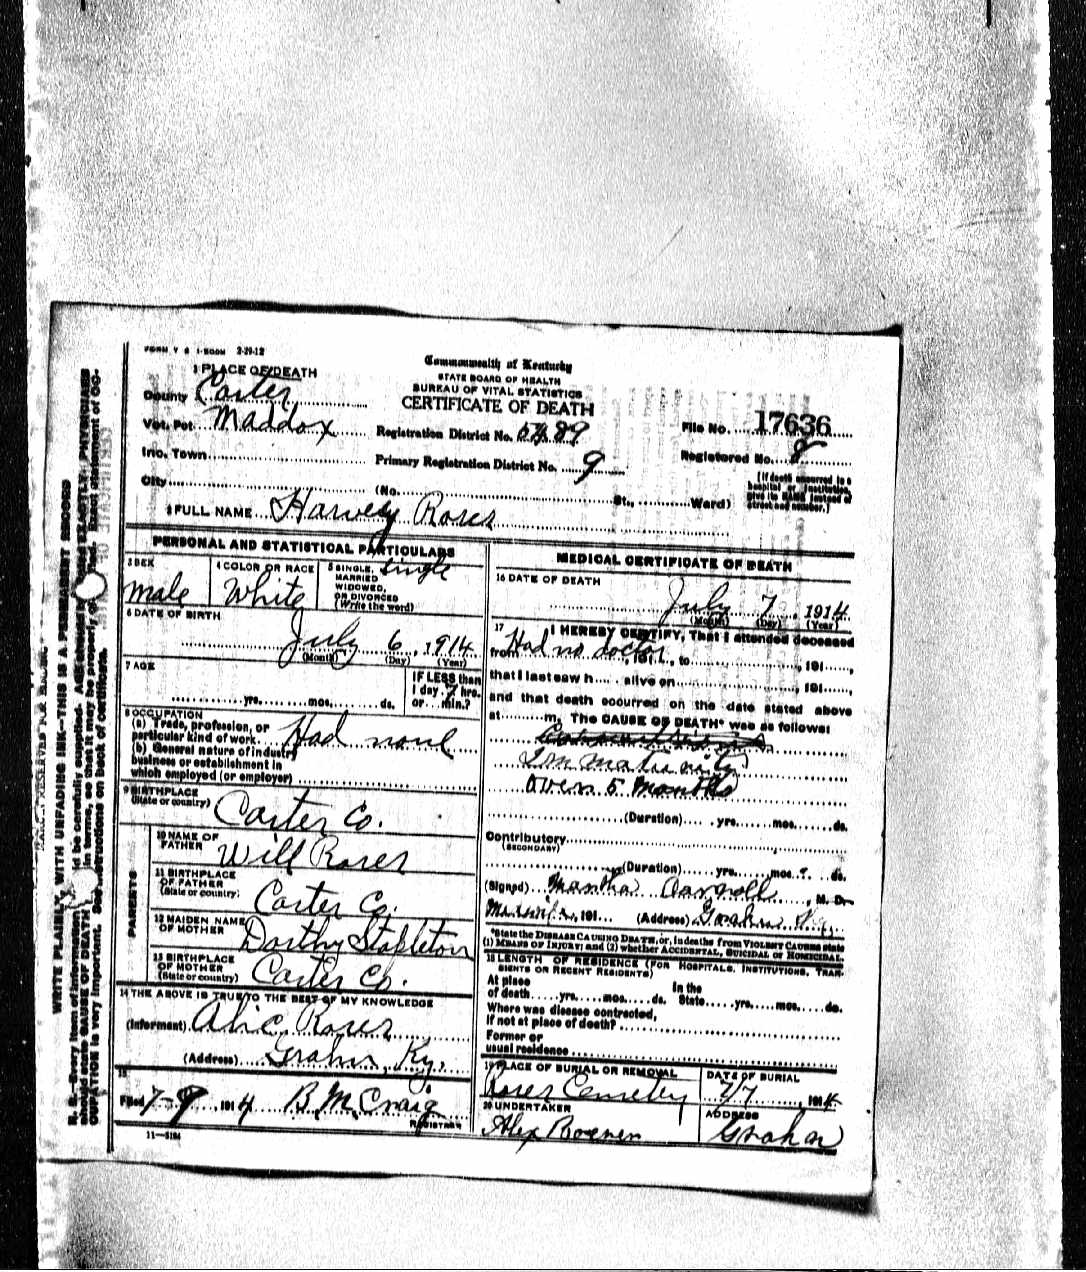 FORM V S 1-500M 2-29-12
Commonwealth of Kentucky
STATE BOARD OF HEALTH
BUREAU OF VITAL STATISTICS
CERTIFICATE OF DEATH
1 PLACE OF DEATH
County Carter
Vot. Pct. Maddox
Registration District No. 5489
File No. 17636
Inc. Town
Primary Registration District No. 9
Registered No. 8
City (No. St., Ward)
[If death occurred in a hospital or institution, give its NAME instead of street and number.]
2 FULL NAME Harvey Roser
PERSONAL AND STATISTICAL PARTICULARS
3 SEX
male
4 COLOR OR RACE
White
5 SINGLE, MARRIED WIDOWED, OR DIVORCED (Write the word)
Single
6 DATE OF BIRTH
July 6, 1914
(Month) (Day) (Year)
7 AGE
yrs. mos. ds.
IF LESS than
1 day, 7 hrs.
or min.?
8 OCCUPATION
(a) Trade, profession, or
particular kind of work Had nonl
(b) General nature of industry
business or establishment in
which employed (or employer)
9 BIRTHPLACE
(State or country)
Carter Co.
PARENTS
10 NAME OF FATHER
Will Roser
11 BIRTHPLACE OF FATHER
(State or country)
Carter Co.
12 MAIDEN NAME OF MOTHER
Dorthy Stapleton
13 BIRTHPLACE OF MOTHER
(State or country)
Carter Co.
14 THE ABOVE IS TRUE TO THE BEST OF MY KNOWLEDGE
(Informant) Roser
(Address) Grahn Ky.
15
Filed 7-9, 1914 B.M. Craig
REGISTRAR
11-5184
MEDICAL CERTIFICATE OF DEATH
16 DATE OF DEATH
July 7, 1914
(Month) (Day) (Year)
17 I HEREBY CERTIFY, That I attended deceased
from Had no doctor, 191 , to , 191 ,
that I last saw h alive on , 191 ,
and that death occurred on the date stated above
at m. The CAUSE OF DEATH* was as follows:
Immaturity
over 5 months
(Duration) yrs. mos. ds.
Contributory
(SECONDARY)
(Duration) yrs. mos. ds.
(Signed) Martha Carroll, M. D.
, 191 (Address) Grahn Ky.
*State the DISEASE CAUSING DEATH, or, in deaths from VIOLENT CAUSES state
(1) MEANS OF INJURY; and (2) whether ACCIDENTAL, SUICIDAL or HOMICIDAL.
18 LENGTH OF RESIDENCE (FOR HOSPITALS, INSTITUTIONS, TRANSIENTS OR RECENT RESIDENTS)
At place of death yrs. mos. ds. In the State yrs. mos. ds.
Where was disease contracted,
if not at place of death?
Former or
usual residence
19 PLACE OF BURIAL OR REMOVAL
Roser Cemetery
DATE OF BURIAL
7/7, 1914
20 UNDERTAKER
Alex
ADDRESS
Grahn
WRITE PLAINLY, WITH UNFADING INK—THIS IS A PERMANENT RECORD